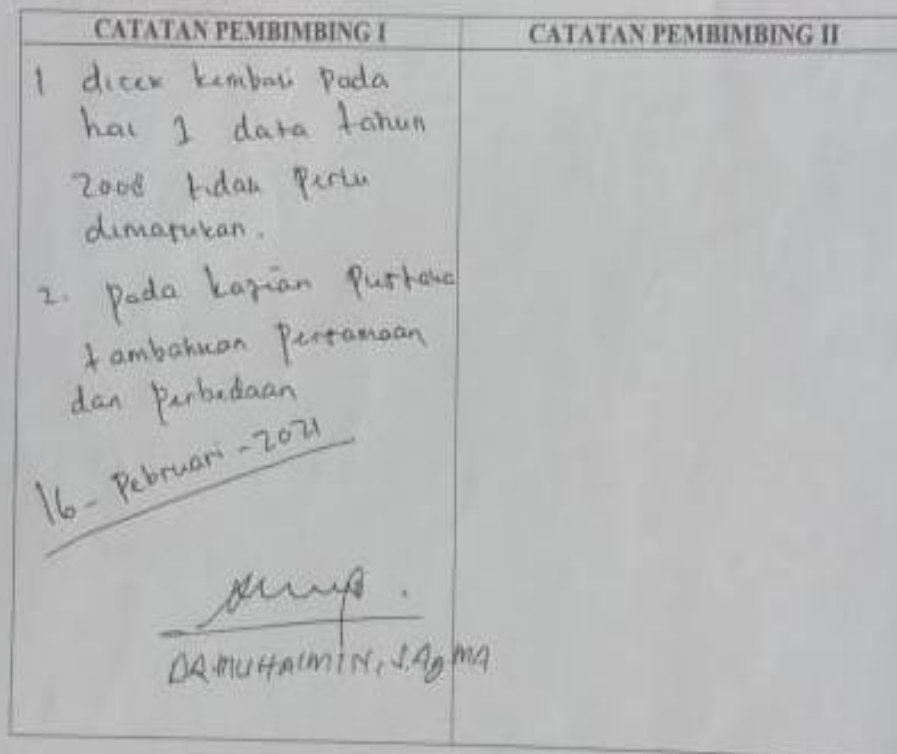 CATATAN PEMBIMBING I
CATATAN PEMBIMBING II
1 dicek kembali pada
hal 1 data tahun
2008 tidak perlu
dimasukan.
2. pada kajian pustaka
tambahkan persamaan
dan perbedaan
16 - Pebruari - 2021
DR. MUHAIMIN, S.Ag MA